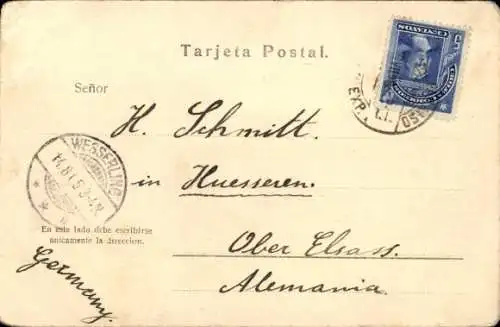 Tarjeta Postal.
Señor
H. Schmitt.
in Huesseren.
Ober Elsass.
Alemania.
Germany.
En este lado debe escribirse
únicamente la dirección.
WESSERLING
EXP.
5 CENTAVOS